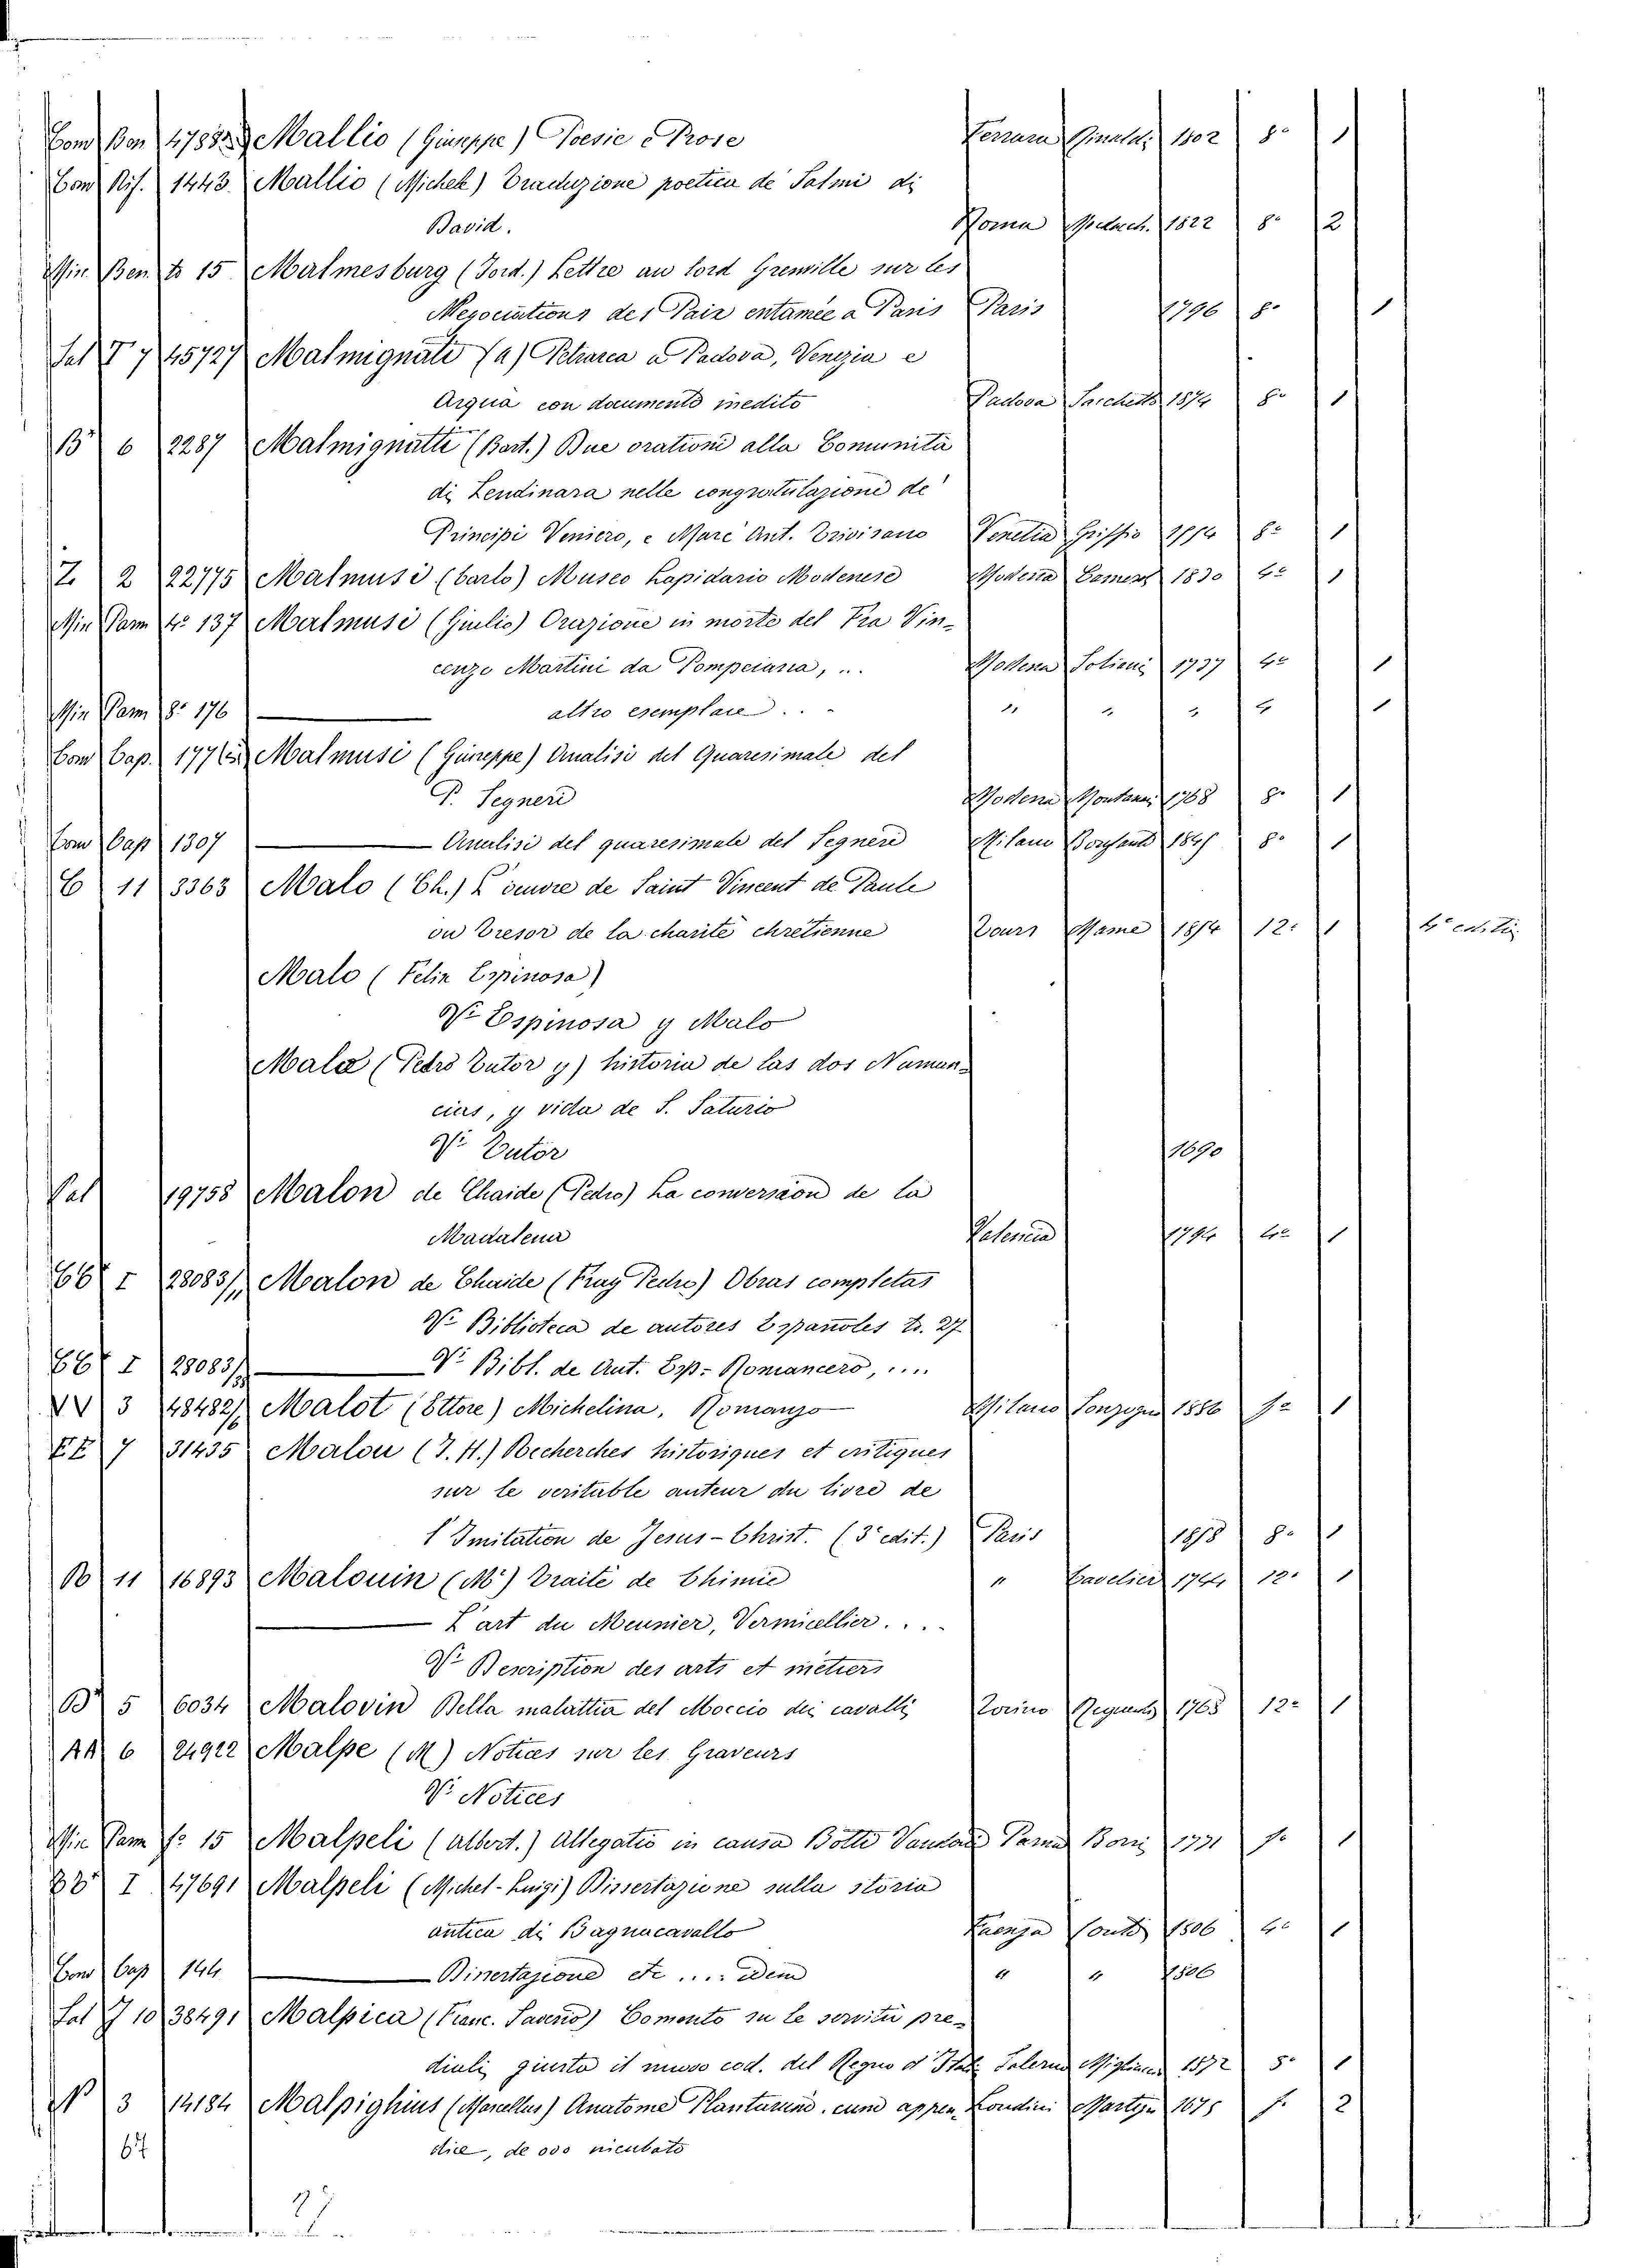 Com Bon 4788 Mallio (Giuseppe) Poesie e Prose Ferrara Rinaldi 1802 8º 1
Com Rif. 1443. Mallio (Michele) Traduzione poetica de' Salmi di
David. Roma 1822 8º 2
Min Ben to 15 Malmesburg (Lord.) Lettre au lord Grenville sur les
Negociations des Paix entamée a Paris Paris 1796 8º 1
Sal T 7 45727 Malmignati (A) Petrarca a Padova, Venezia e
Arquà con documento inedito Padova Sacchetto 1874 8º 1
B* 6 2287 Malmignatti (Bart.) Due orationi alla Comunità
di Lendinara nelle congratulazioni de'
Principi Veniero, e Marc' Ant. Trivisano Venetia Griffio 1554 8º 1
Z 2 22775 Malmusi (Carlo) Museo Lapidario Modenese Modena Camera 1830 4º 1
Min Pam 4º 137 Malmusi (Giulio) Orazione in morte del Fra Vin-
cenzo Martini da Pompeiana, ... Modena Soliani 1737 4º 1
Min Pam 8º 176 altro esemplare ... " " " " 1
Com Cap. 1776 Malmusi (Giuseppe) Analisi del Quaresimale del
P. Segneri Modena Montanari 1768 8º 1
Com Cap 1307 Analisi del quaresimale del Segneri Milano 184 8º 1
C 11 3363 Malo (Ch.) L'oeuvre de Saint Vincent de Paule
ou Tresor de la charité chretienne Tours Mame 1854 12º 1 4e editi
Malo (Felix Espinosa)
Vº Espinosa y Malo
Malo (Pedro Tutor y) historia de las dos Numan-
cias, y vida de S. Saturio
Vº Tutor 1690
Sal 19758 Malon de Chaide (Pedro) La conversion de la
Madalena Valencia 1794 4º 1
CC I 28083/ Malon de Chaide (Fray Pedro) Obras completas
Vº Biblioteca de autores Españoles to. 27
CC I 28083/ Vº Bibl. de Aut. Esp. Romancero, ....
VV 3 48482/ Malot (Ettore) Michelina, Romanzo Milano Sonzogno 1886 fº 1
EE 7 31435 Malou (J. H.) Recherches historiques et critiques
sur le veritable auteur du livre de
l'Imitation de Jesus-Christ. (3e edit.) Paris 1858 8º 1
O 11 16893 Malouin (Mr) Traité de Chimie " Cavelier 1744 12º 1
L'art du Meunier, Vermicellier....
Vº Description des arts et métiers
B* 5 6034 Malovin Della malattia del Moccio dei cavalli Torino 1765 12º 1
AA 6 24922 Malpe (M) Notices sur les Graveurs
Vº Notices
Min Pam fº 15 Malpeli (Albert.) Allegatio in causa Dotte Parma Borri 1731 fº 1
I 47691 Malpeli (Michel-Luigi) Dissertazione sulla storia
antica di Bagnacavallo Faenza Conti 1806 4º 1
Com Cap 144 Dissertazione etc .... idem " " 1806
Sal J 10 38491 Malpica (Franc. Saverio) Comento su le servitù pre-
diali, giusta il nuovo cod. del Regno d'Ital. Salerno Migliaccio 1872 5º 1
3 14184 Malpighius (Marcellus) Anatome Plantarum. cum appen- Londini Martyn 1675 fº 2
dice, de ovo incubato
67
27